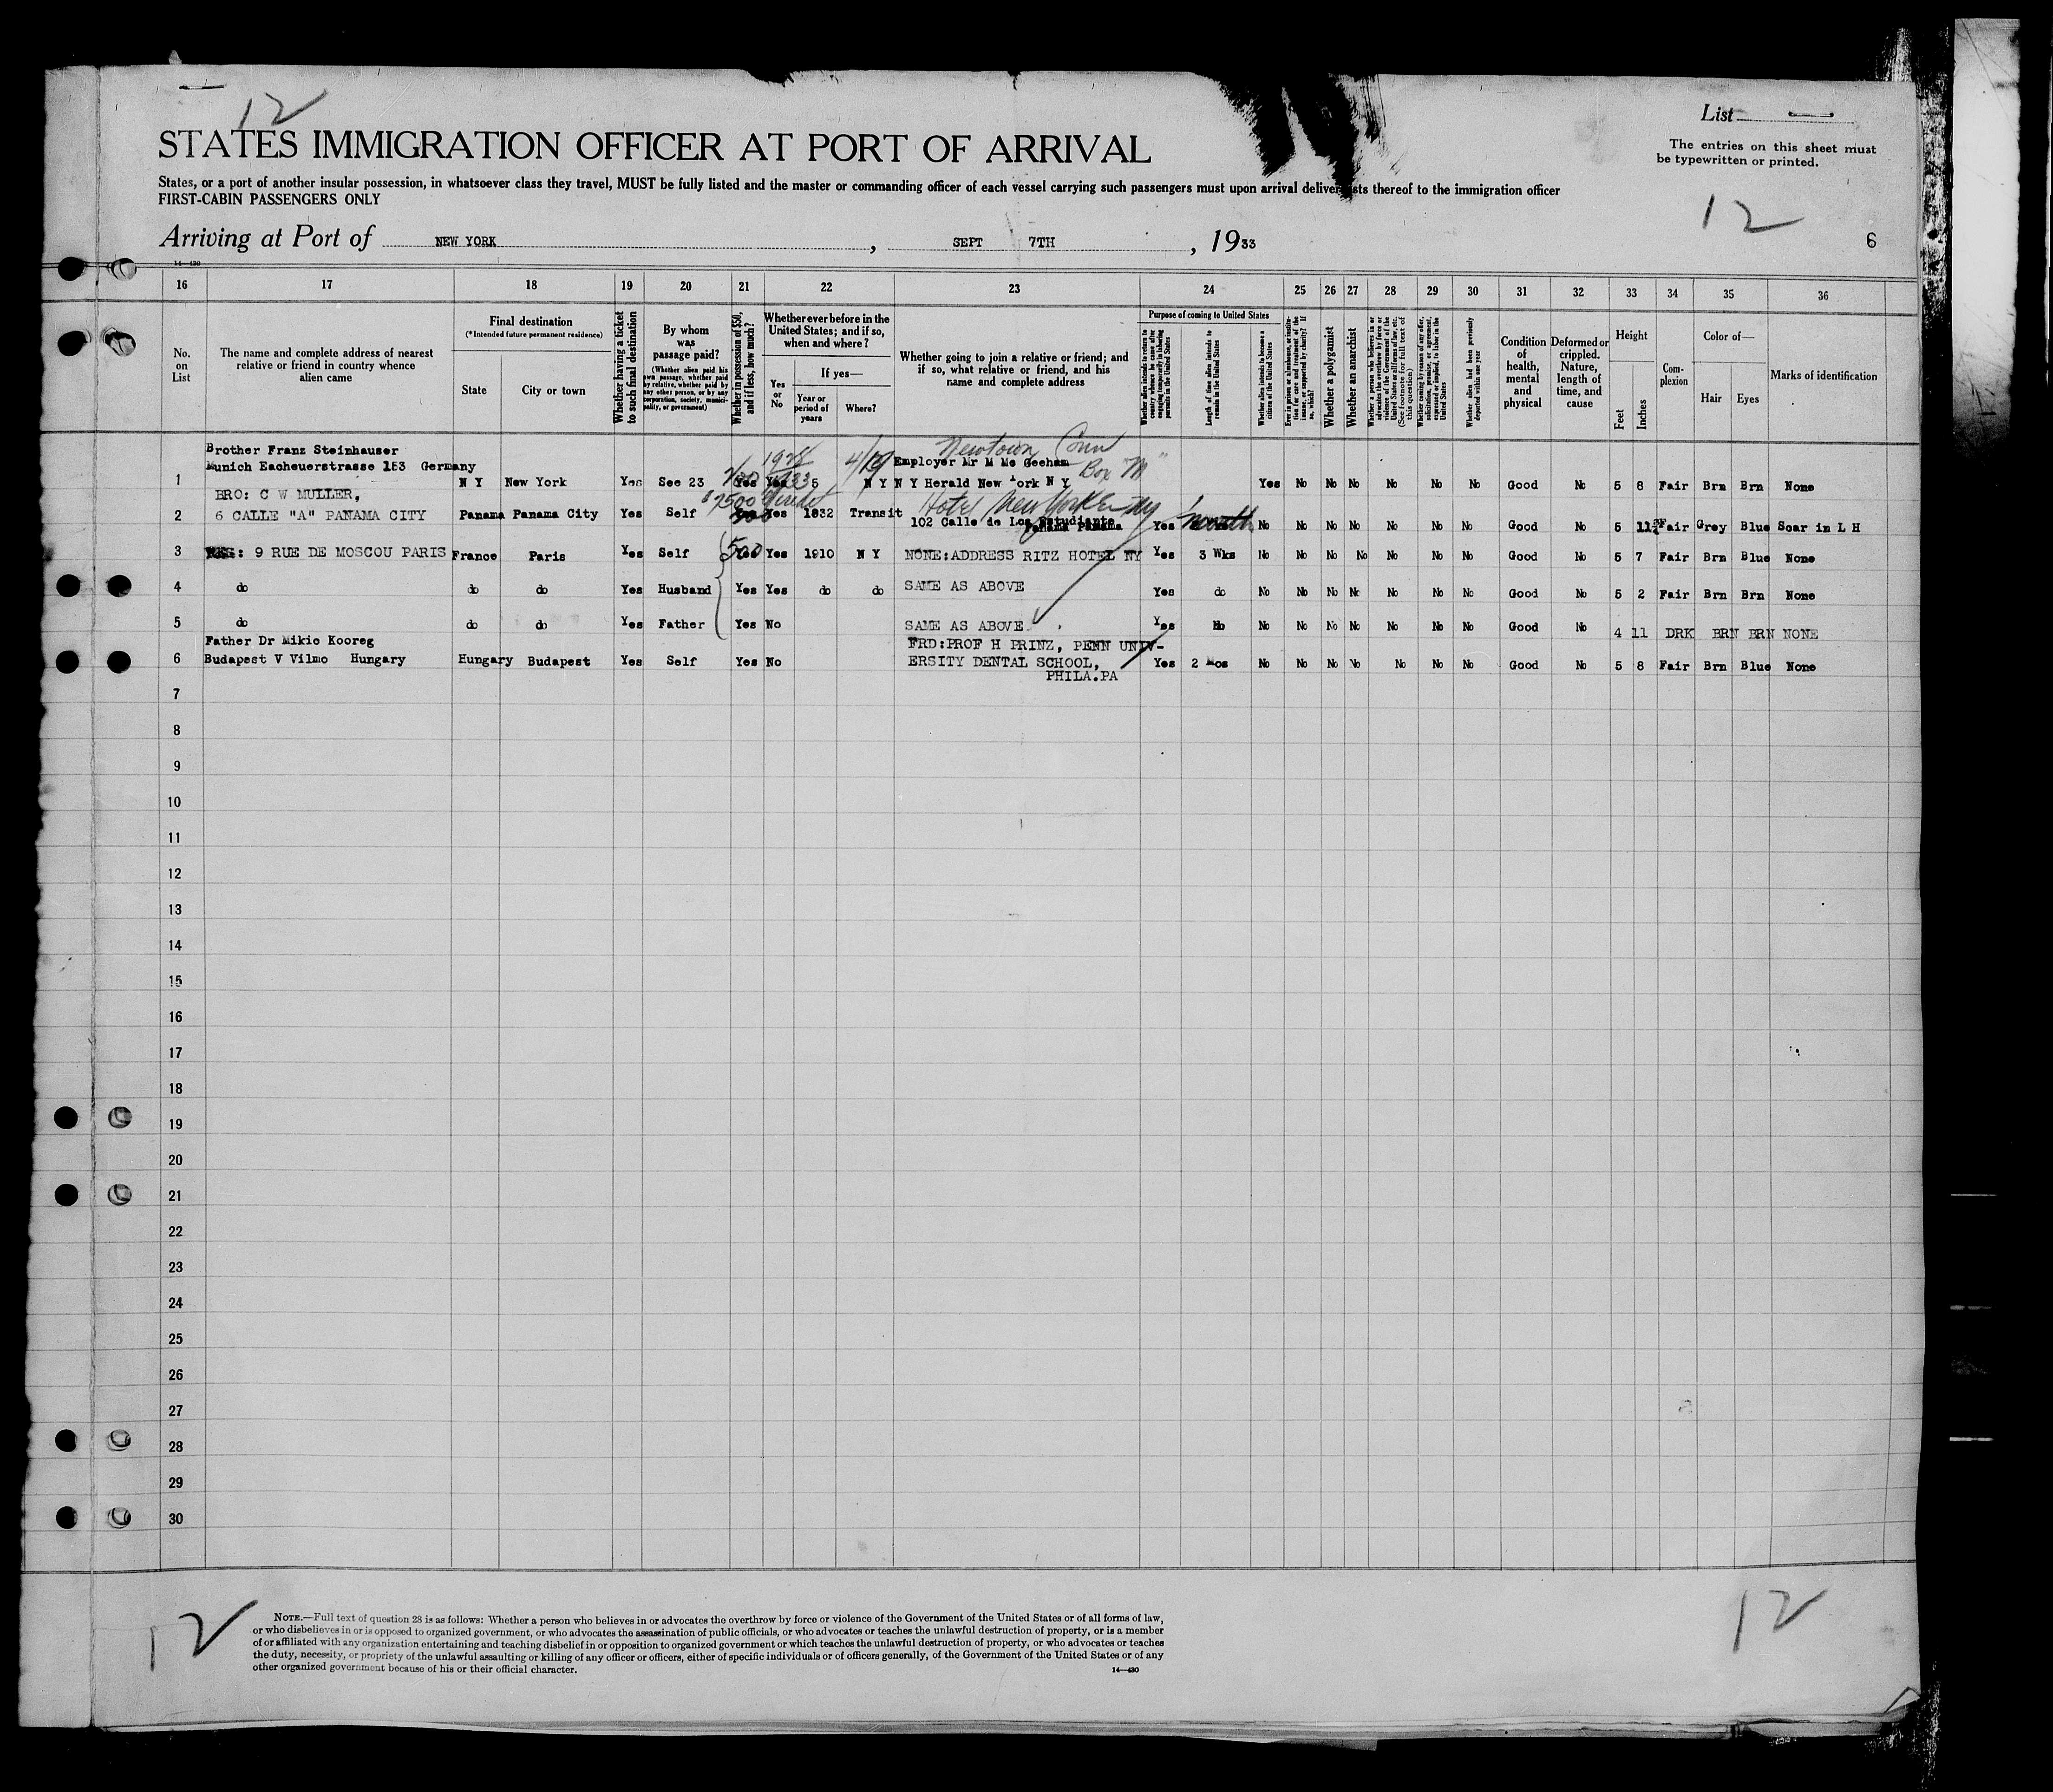 12
List
STATES IMMIGRATION OFFICER AT PORT OF ARRIVAL
The entries on this sheet must
be typewritten or printed.
States, or a port of another insular possession, in whatsoever class they travel, MUST be fully listed and the master or commanding officer of each vessel carrying such passengers must upon arrival deliver lists thereof to the immigration officer
FIRST-CABIN PASSENGERS ONLY
12
Arriving at Port of NEW YORK , SEPT 7TH , 1933
6
14—430
16 17 18 19 20 21 22 23 24 25 26 27 28 29 30 31 32 33 34 35 36
No. on List
The name and complete address of nearest relative or friend in country whence alien came
Final destination
(*Intended future permanent residence)
State
City or town
Whether having a ticket to such final destination
By whom was passage paid?
(Whether alien paid his own passage, whether paid by relative, whether paid by any other person, or by any corporation, society, municipality, or government)
Whether in possession of $50, and if less, how much?
Whether ever before in the United States; and if so, when and where?
Yes or No
If yes—
Year or period of years
Where?
Whether going to join a relative or friend; and if so, what relative or friend, and his name and complete address
Purpose of coming to United States
Whether alien intends to return to country whence he came after engaging temporarily in laboring pursuits in the United States
Length of time alien intends to remain in the United States
Whether alien intends to become a citizen of the United States
Ever in prison or almshouse, or institution for care and treatment of the insane, or supported by charity? If so, which?
Whether a polygamist
Whether an anarchist
Whether a person who believes in or advocates the overthrow by force or violence of the Government of the United States or all forms of law, etc. (See footnote for full text of this question)
Whether coming by reason of any offer, solicitation, promise, or agreement, expressed or implied, to labor in the United States
Whether alien had been previously deported within one year
Condition of health, mental and physical
Deformed or crippled. Nature, length of time, and cause
Height
Feet
Inches
Complexion
Color of—
Hair
Eyes
Marks of identification
Newtown Conn
Box "M"
1928
1933
4/19
Brother Franz Steinhauser
Munich Eacheuerstrasse 153 Germany
1 N Y New York Yes See 23 Yes Yes 5 N Y Employer Mr M Mc Geehan
N Y Herald New York N Y Yes No No No No No No Good No 5 8 Fair Brn Brn None
$2500
Hotel New Yorker NY
BRO: C W MULLER,
2 6 CALLE "A" PANAMA CITY Panama Panama City Yes Self Yes 1932 Transit 102 Calle de Los Estudiante
Panama Panama Yes month No No No No No No No Good No 5 11½ Fair Grey Blue Scar in L H
3 : 9 RUE DE MOSCOU PARIS France Paris Yes Self 500 Yes 1910 N Y NONE:ADDRESS RITZ HOTEL NY Yes 3 Wks No No No No No No No Good No 5 7 Fair Brn Blue None
4 do do do Yes Husband Yes Yes do do SAME AS ABOVE Yes do No No No No No No No Good No 5 2 Fair Brn Brn None
5 do do do Yes Father Yes No SAME AS ABOVE Yes No No No No No No No No Good No 4 11 DRK BRN BRN NONE
Father Dr Mikio Kooreg
6 Budapest V Vilmo Hungary Hungary Budapest Yes Self Yes No FRD:PROF H PRINZ, PENN UNIV-
ERSITY DENTAL SCHOOL,
PHILA.PA Yes 2 Mos No No No No No No No Good No 5 8 Fair Brn Blue None
7
8
9
10
11
12
13
14
15
16
17
18
19
20
21
22
23
24
25
26
27
28
29
30
12
12
NOTE.—Full text of question 28 is as follows: Whether a person who believes in or advocates the overthrow by force or violence of the Government of the United States or of all forms of law,
or who disbelieves in or is opposed to organized government, or who advocates the assassination of public officials, or who advocates or teaches the unlawful destruction of property, or is a member
of or affiliated with any organization entertaining and teaching disbelief in or opposition to organized government or which teaches the unlawful destruction of property, or who advocates or teaches
the duty, necessity, or propriety of the unlawful assaulting or killing of any officer or officers, either of specific individuals or of officers generally, of the Government of the United States or of any
other organized government because of his or their official character.
14—430